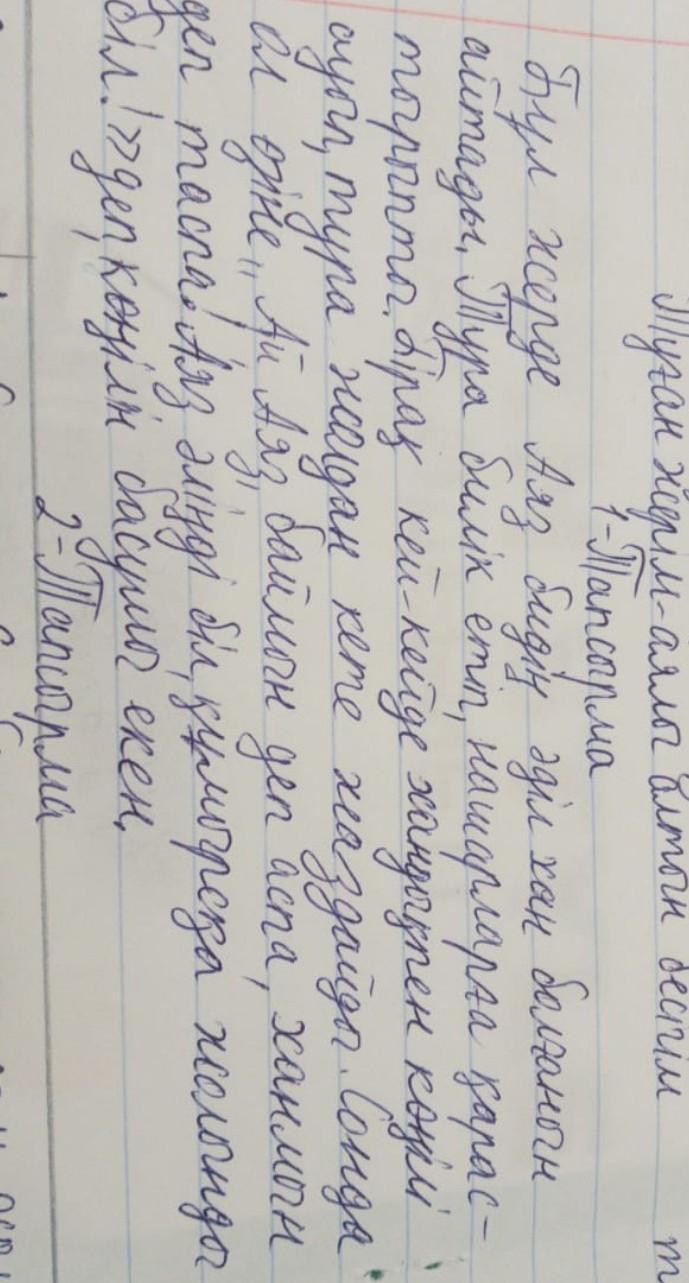 Туған жерім-аялы алтын бесігім
1-Тапсырма
Бұл жерде Аяз бидің әділ хан болғанын
айтады. Тура билік етіп, нашарларға қарас-
тырыпты. Бірақ кей-кейде хандықпен көңілі
ауып, тура жолдан кете жаздайды. Сонда
ол өзіне,, Ай Аяз, баймын деп аспа, ханмын
деп таспа! Аяз әліңді біл, құмырсқа жолыңды
біл!>> деп, көңілін басушы екен.
2-Тапсырма